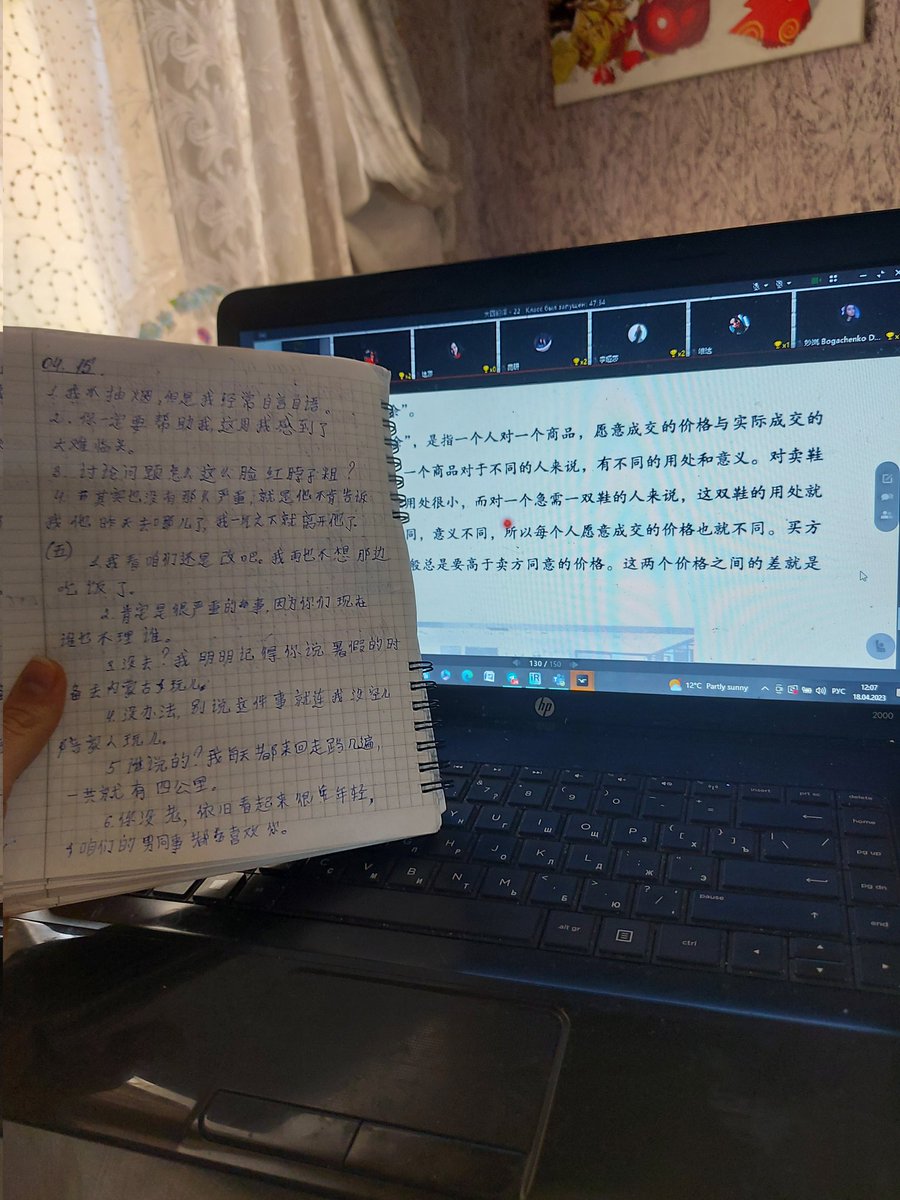 04. 15
1. 我不抽烟,但是我经常自言自语。
2. 你一定要帮助我,这用我感到了
大难临头。
3. 讨论问题怎么这么脸红脖子粗?
4. 其实也没有那么严重,就是他不肯告诉
我他昨天去哪儿了,我一气之下就离开他了。
(五)
1. 我看咱们还是改吧。我再也不想那边
吃饭了。
2. 肯定是很严重的事,因为你们现在
谁也不理谁。
3. 没去?我明明记得你说暑假的时
去内蒙古玩儿。
4. 没办法,别说这件事就连我没空儿
家人玩儿。
5. 谁说的?我每天都来回走路几遍,
一共就有四公里。
6. 你没老,依旧看起来很年轻,
咱们的男同事都喜欢你。
大四 - 22 . Класс был запущен: 47:34
x2
x0
x2
李
x2
x1
Bogachenko D...
余”。
余”,是指一个人对一个商品,愿意成交的价格与实际成交的
一个商品对于不同的人来说,有不同的用处和意义。对卖鞋
用处很小,而对一个急需一双鞋的人来说,这双鞋的用处就
同,意义不同,所以每个人愿意成交的价格也就不同。买方
般总是要高于卖方同意的价格。这两个价格之间的差就是
130 / 150
12°C Partly sunny
РУС
12:07
18.04.2023
hp
2000
insert
prt sc
delete
home
pg up
pause
pg dn
alt gr
ctrl
end